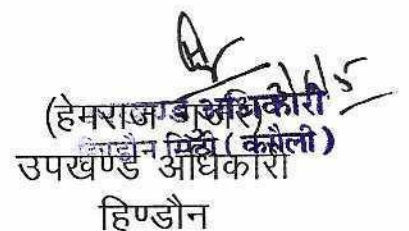 (हेमराज गुर्जर)
उपखण्ड अधिकारी
हिण्डौन सिटी (करौली)
उपखण्ड अधिकारी
हिण्डौन